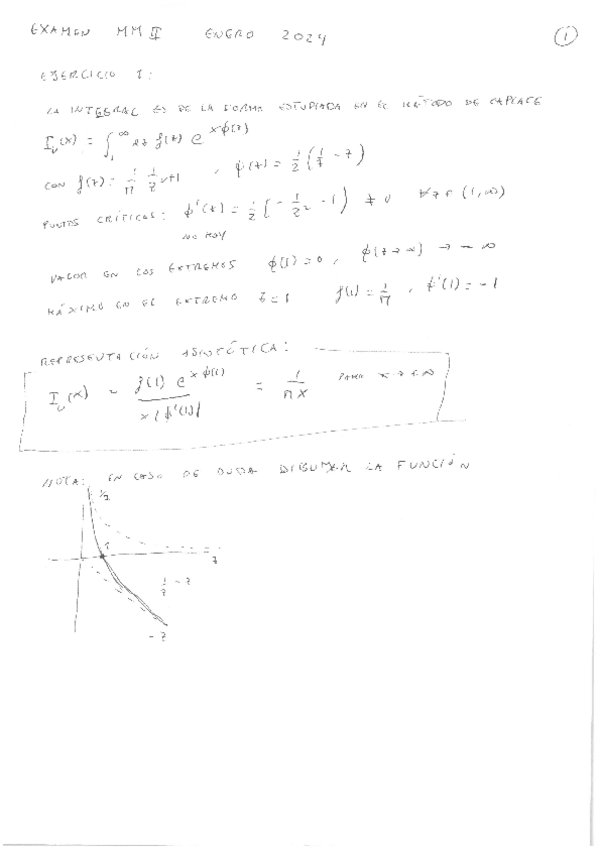 EXAMEN MM II ENERO 2024 1
EJERCICIO 1:
LA INTEGRAL ES DE LA FORMA ESTUDIADA EN EL MÉTODO DE LAPLACE
I_ν(x) = ∫_1^∞ dz f(z) e^{xϕ(z)}
CON f(z) = 1/π 1/z^{ν+1} , ϕ(z) = 1/2 (1/z - z)
PUNTOS CRÍTICOS: ϕ'(z) = 1/2 (-1/z² - 1) ≠ 0 ∀ z ∈ (1,∞)
NO HAY
VALOR EN LOS EXTREMOS ϕ(1) = 0 , ϕ(z→∞) → -∞
MÁXIMO EN EL EXTREMO z = 1 f(1) = 1/π , ϕ'(1) = -1
REPRESENTACIÓN ASINTÓTICA:
I_ν(x) ~ f(1) e^{xϕ(1)} / x|ϕ'(1)| = 1/πx PARA x → +∞
NOTA: EN CASO DE DUDA DIBUJAR LA FUNCIÓN
1/z
1
z
1/z - z
-z